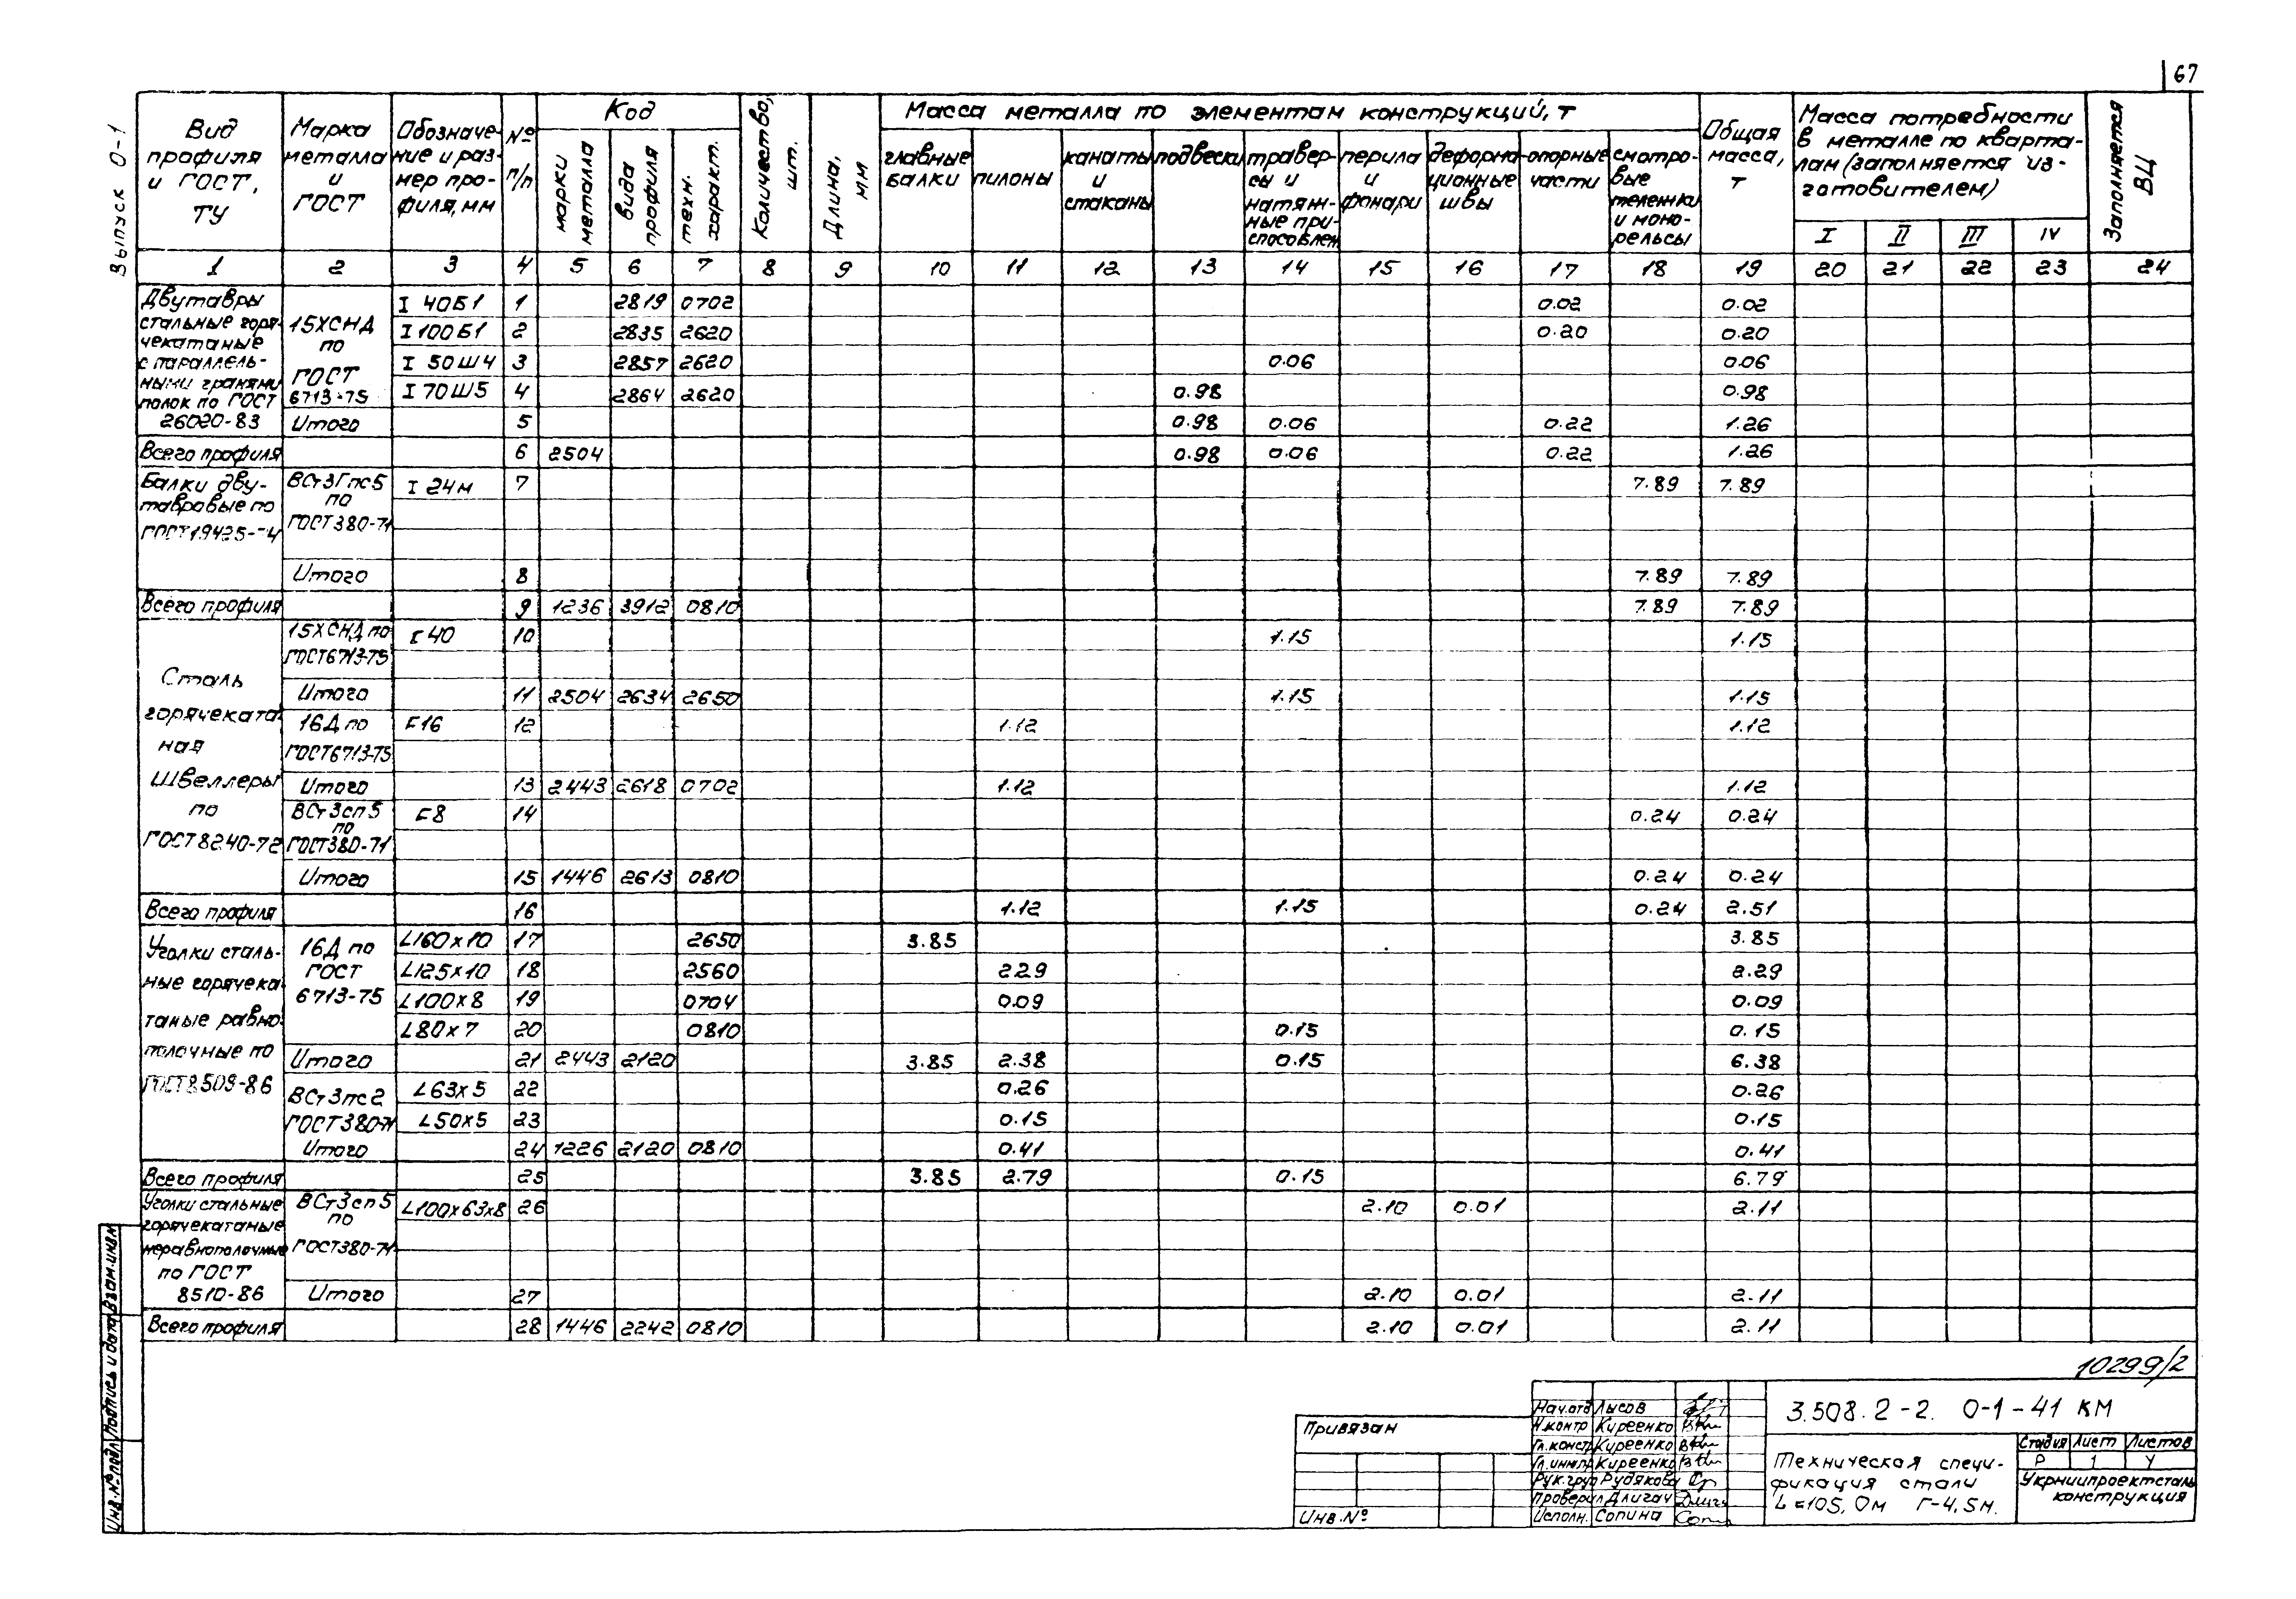 67
Выпуск 0-1
Вид профиля и ГОСТ, ТУ
Марка металла и ГОСТ
Обозначение и размер профиля, мм
№ п/п
Код
марки металла
вида профиля
техн. характ.
Количество, шт.
Длина, мм
Масса металла по элементам конструкций, т
главные балки
пилоны
канаты и стаканы
подвески
траверсы и натяжные приспособлен
перила и фонари
деформационные швы
опорные части
смотровые тележки и монорельсы
Общая масса, т
Масса потребности в металле по кварталам (заполняется изготовителем)
I II III IV
Заполняется ВЦ
1 2 3 4 5 6 7 8 9 10 11 12 13 14 15 16 17 18 19 20 21 22 23 24
Двутавры стальные горячекатаные с параллельными гранями полок по ГОСТ 26020-83
15ХСНД по ГОСТ 6713-75
I 40Б1 1 2819 0702 0.02 0.02
I 100Б1 2 2835 2620 0.20 0.20
I 50Ш4 3 2857 2620 0.06 0.06
I 70Ш5 4 2864 2620 0.98 0.98
Итого 5 0.98 0.06 0.22 1.26
Всего профиля 6 2504 0.98 0.06 0.22 1.26
Балки двутавровые по ГОСТ 19425-74
ВСт3Гпс5 по ГОСТ 380-71
I 24м 7 7.89 7.89
Итого 8 7.89 7.89
Всего профиля 9 1236 3912 0810 7.89 7.89
Сталь горячекатаная Швеллеры по ГОСТ 8240-72
15ХСНД по ГОСТ 6713-75
[ 40 10 1.15 1.15
Итого 11 2504 2634 2650 1.15 1.15
16Д по ГОСТ 6713-75
[ 16 12 1.12 1.12
Итого 13 2443 2618 0702 1.12 1.12
ВСт3сп5 по ГОСТ 380-71
[ 8 14 0.24 0.24
Итого 15 1446 2613 0810 0.24 0.24
Всего профиля 16 1.12 1.15 0.24 2.51
Уголки стальные горячекатаные равнополочные по ГОСТ 8509-86
16Д по ГОСТ 6713-75
L160х10 17 2650 3.85 3.85
L125х10 18 2560 2.29 2.29
L100х8 19 0704 0.09 0.09
L80х7 20 0810 0.15 0.15
Итого 21 2443 2120 3.85 2.38 0.15 6.38
ВСт3пс2 ГОСТ 380-71
L63х5 22 0.26 0.26
L50х5 23 0.15 0.15
Итого 24 1226 2120 0810 0.41 0.41
Всего профиля 25 3.85 2.79 0.15 6.79
Уголки стальные горячекатаные неравнополочные по ГОСТ 8510-86
ВСт3сп5 по ГОСТ 380-71
L100х63х8 26 2.10 0.01 2.11
Итого 27 2.10 0.01 2.11
Всего профиля 28 1446 2242 0810 2.10 0.01 2.11
Инв.№ подл Подпись и дата Взам.инв№
10299/2
Привязан
Инв.№
Нач.отд Лысов
Н.контр Киреенко
Гл.констр Киреенко
Гл.инж.пр Киреенко
Рук.груп Рудякова
Проверил Длигач
Исполн. Сопина
3.508.2-2. 0-1-41 КМ
Техническая спецификация стали
L=105,0м Г-4,5м.
Стадия Лист Листов
Р 1 4
Укрниипроектстальконструкция